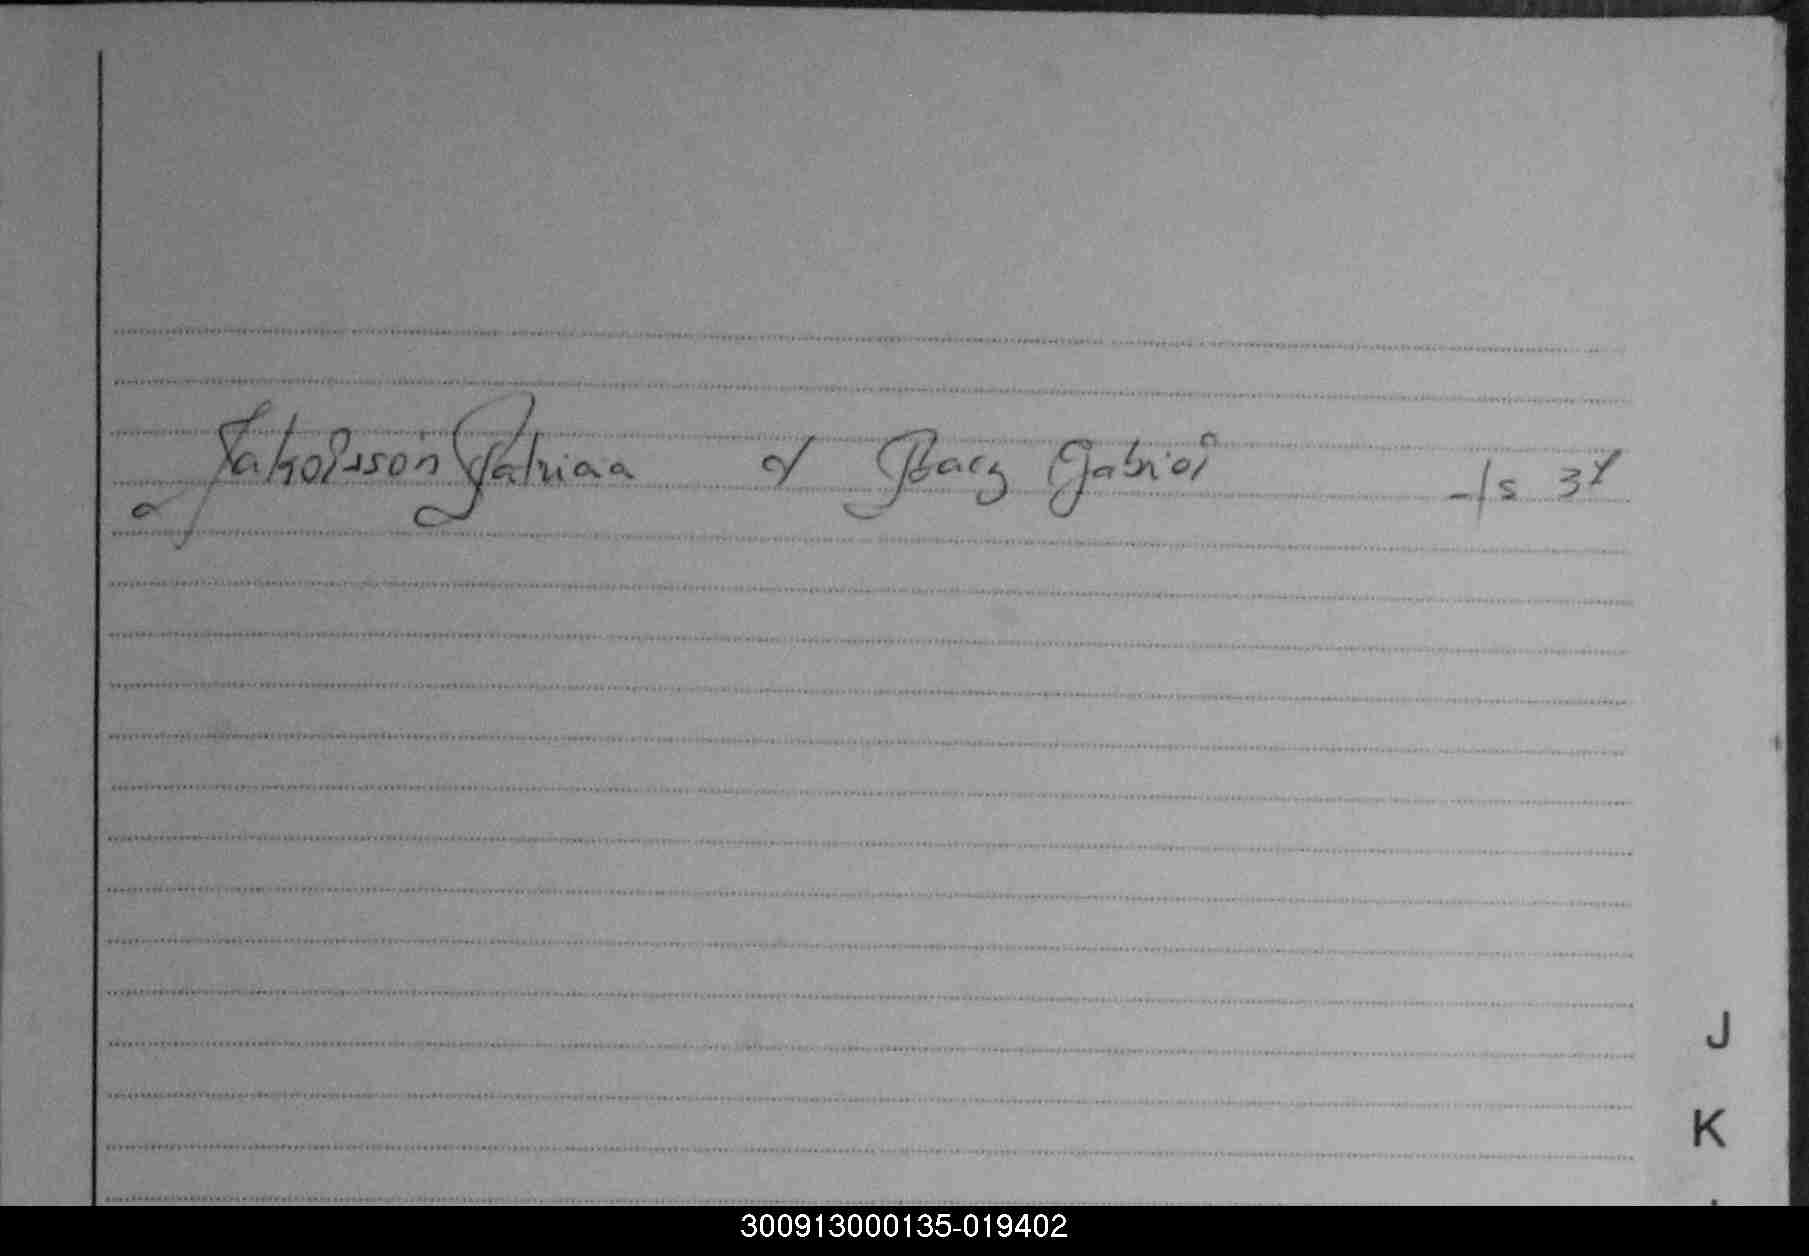 Jakobsson Fabian d Bacz Gabriel -/s 34
J
K
300913000135-019402